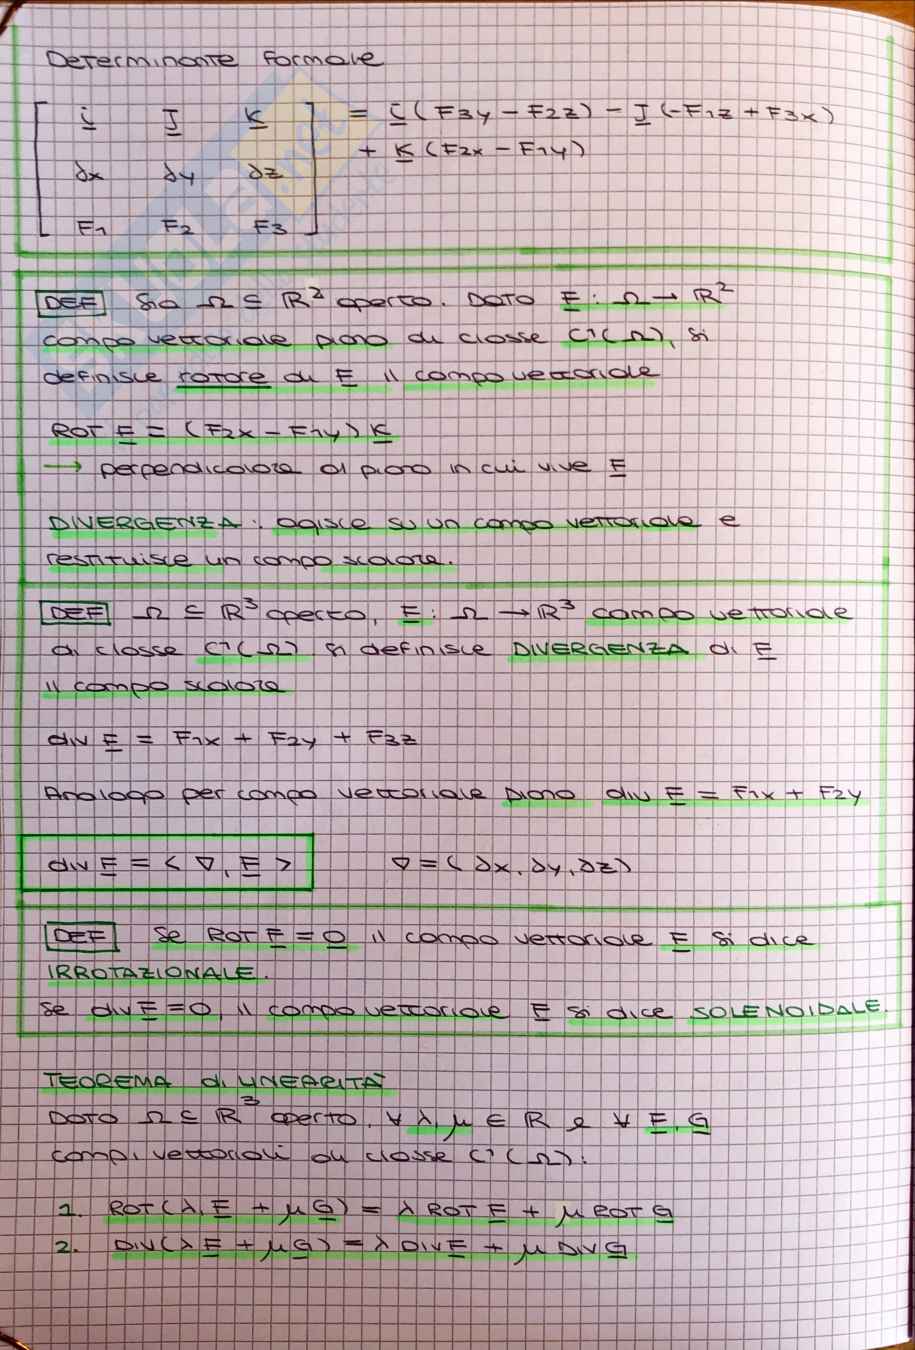 Determinante Formale
i J K = i (F3y - F2z) - J (-F1z + F3x)
+ K (F2x - F1y)
∂x ∂y ∂z
F1 F2 F3
DEF Sia Ω ⊆ ℝ² aperto. Dato F : Ω → ℝ²
campo vettoriale piano di classe C¹(Ω), si
definisce rotore di F il campo vettoriale
ROT F = (F2x - F1y) K
→ perpendicolare al piano in cui vive F
DIVERGENZA : agisce su un campo vettoriale e
restituisce un campo scalare.
DEF Ω ⊆ ℝ³ aperto, F : Ω → ℝ³ campo vettoriale
di classe C¹(Ω) si definisce DIVERGENZA di F
il campo scalare
div F = F1x + F2y + F3z
Analogo per campo vettoriale piano div F = F1x + F2y
div F = < ∇, F > ∇ = (∂x, ∂y, ∂z)
DEF Se ROT F = 0 il campo vettoriale F si dice
IRROTAZIONALE.
Se div F = 0, il campo vettoriale F si dice SOLENOIDALE.
TEOREMA di LINEARITÀ
Dato Ω ⊆ ℝ³ aperto, ∀ λ, μ ∈ ℝ e ∀ F, G
campi vettoriali di classe C¹(Ω):
1. ROT(λ F + μ G) = λ ROT F + μ ROT G
2. DIV(λ F + μ G) = λ DIV F + μ DIV G